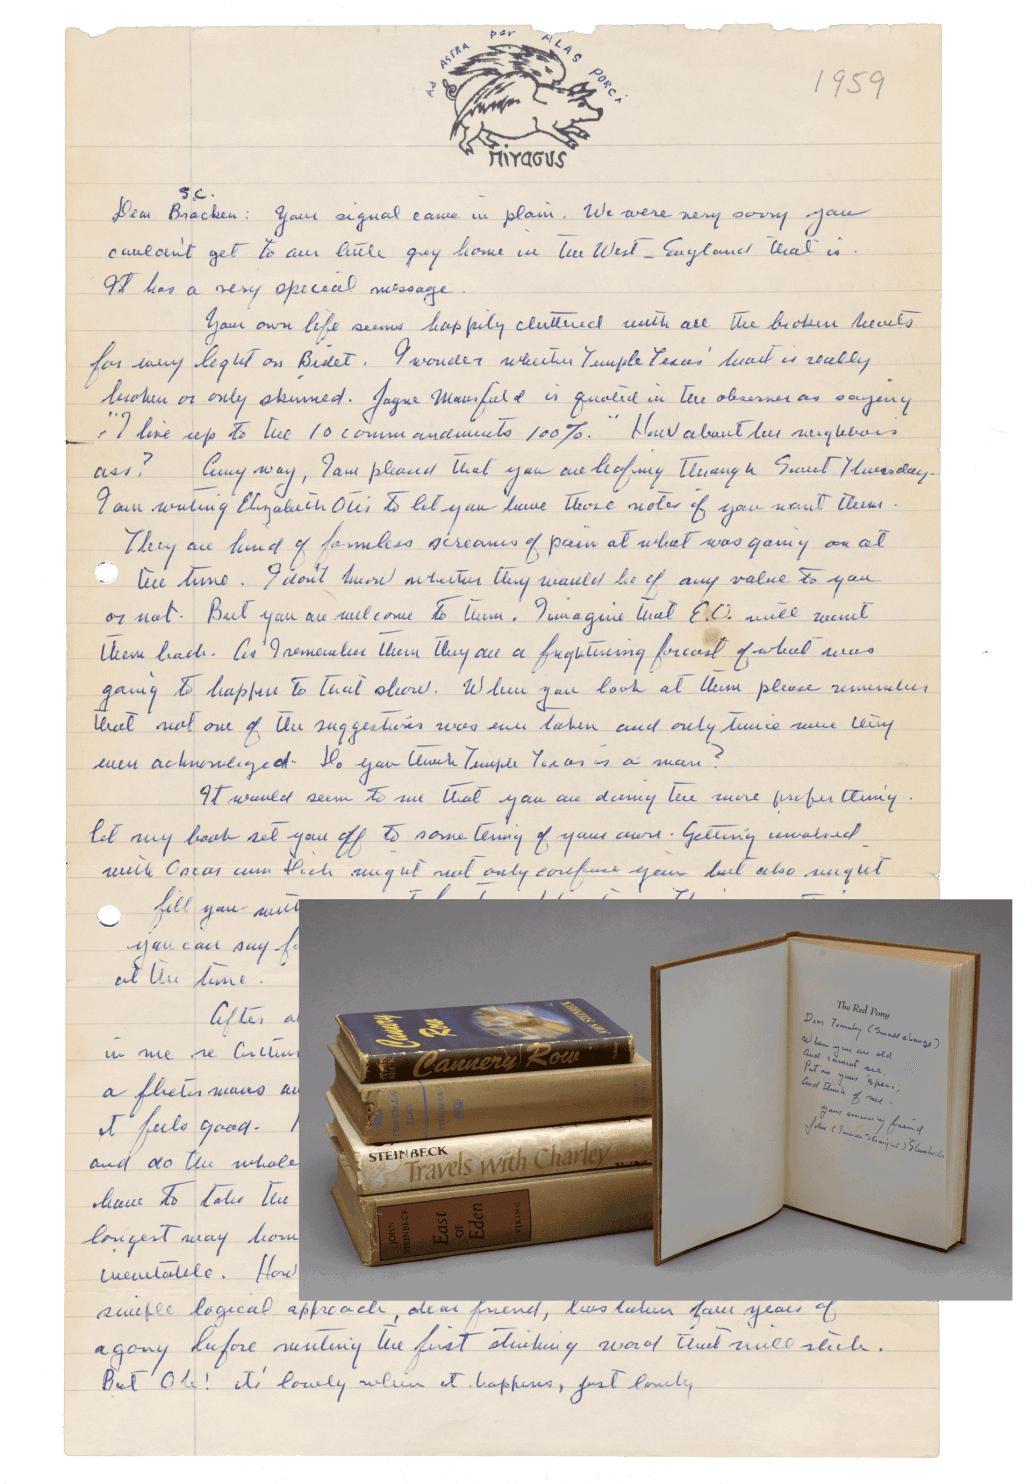 Ad ASTRA por ALAS PORCI
1959
s.c.
Dear Bracken: Your signal came in plain. We were very sorry you
couldn't get to our little grey home in the West — England that is.
It has a very special message.
Your own life seems happily cluttered with all the broken hearts
for every light on Bidet. I wonder whether Temple Texas' heart is really
broken or only skinned. Jayne Mansfield is quoted in the observer as saying
"I live up to the 10 commandments 100%." How about her neighbors
ass? Any way, I am pleased that you are leafing through Sweet Thursday.
I am writing Elizabeth Otis to let you have those notes if you want them.
They are kind of formless screams of pain at what was going on at
the time. I don't know whether they would be of any value to you
or not. But you are welcome to them. I imagine that E.O. will want
them back. As I remember them they are a frightening forecast of what was
going to happen to that show. When you look at them please remember
that not one of the suggestions was ever taken and only twice were they
even acknowledged. Do you think Temple Texas is a man?
It would seem to me that you are doing the more proper thing.
let my book set you off to something of your own. Getting involved
with Oscar cum Dick might not only confuse you but also might
fill you with
you can say
at the time.
After
in me re
a
it feels good.
and do the whole
have to take the
longest way home
inevitable. How
simple logical approach, dear friend, has taken four years of
agony before writing the first stinking word that will stick.
But Oh! its' lovely when it happens, just lovely
Cannery
Row
JOHN STEINBECK
Cannery Row
TORTILLA
FLAT
STEINBECK
Travels with Charley
VIKING
JOHN
STEINBECK
East
OF
Eden
VIKING
The Red Pony
Dear (Small change)
When you are old
And cannot see,
Put on your 'specs,
And think of me.
your friend
John Steinbeck